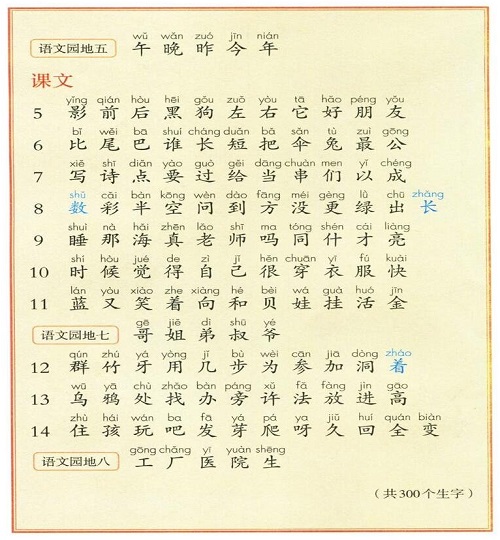 wǔ wǎn zuó jīn nián
语文园地五 午 晚 昨 今 年
课文
yǐng qián hòu hēi gǒu zuǒ yòu tā hǎo péng yǒu
5 影 前 后 黑 狗 左 右 它 好 朋 友
bǐ wěi bā shuí cháng duǎn bǎ sǎn tù zuì gōng
6 比 尾 巴 谁 长 短 把 伞 兔 最 公
xiě shī diǎn yào guò gěi dāng chuàn men yǐ chéng
7 写 诗 点 要 过 给 当 串 们 以 成
shǔ cǎi bàn kōng wèn dào fāng méi gèng lǜ chū zhǎng
8 数 彩 半 空 问 到 方 没 更 绿 出 长
shuì nà hǎi zhēn lǎo shī ma tóng shén cái liàng
9 睡 那 海 真 老 师 吗 同 什 才 亮
shí hòu jué de zì jǐ hěn chuān yī fú kuài
10 时 候 觉 得 自 己 很 穿 衣 服 快
lán yòu xiào zhe xiàng hé bèi wá guà huó jīn
11 蓝 又 笑 着 向 和 贝 娃 挂 活 金
gē jiě dì shū yé
语文园地七 哥 姐 弟 叔 爷
qún zhú yá yòng jǐ bù wèi cān jiā dòng zháo
12 群 竹 牙 用 几 步 为 参 加 洞 着
wū yā chù zhǎo bàn páng xǔ fǎ fàng jìn gāo
13 乌 鸦 处 找 办 旁 许 法 放 进 高
zhù hái wán ba fā yá pá ya jiǔ huí quán biàn
14 住 孩 玩 吧 发 芽 爬 呀 久 回 全 变
gōng chǎng yī yuàn shēng
语文园地八 工 厂 医 院 生
（共300个生字）